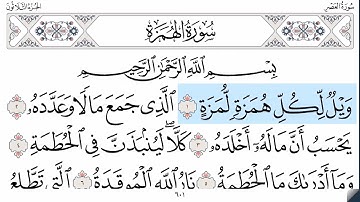 سُورَةُ العَصْرِ الجُزْءُ الثَّلَاثُونَ
سُورَةُ الهُمَزَةِ
بِسْمِ اللَّهِ الرَّحْمَٰنِ الرَّحِيمِ
وَيْلٌ لِّكُلِّ هُمَزَةٍ لُّمَزَةٍ ١ الَّذِي جَمَعَ مَالًا وَعَدَّدَهُ ٢
يَحْسَبُ أَنَّ مَالَهُ أَخْلَدَهُ ٣ كَلَّا لَيُنۢبَذَنَّ فِي الْحُطَمَةِ ٤
وَمَا أَدْرَىٰكَ مَا الْحُطَمَةُ ٥ نَارُ اللَّهِ الْمُوقَدَةُ ٦ الَّتِي تَطَّلِعُ
٦٠١